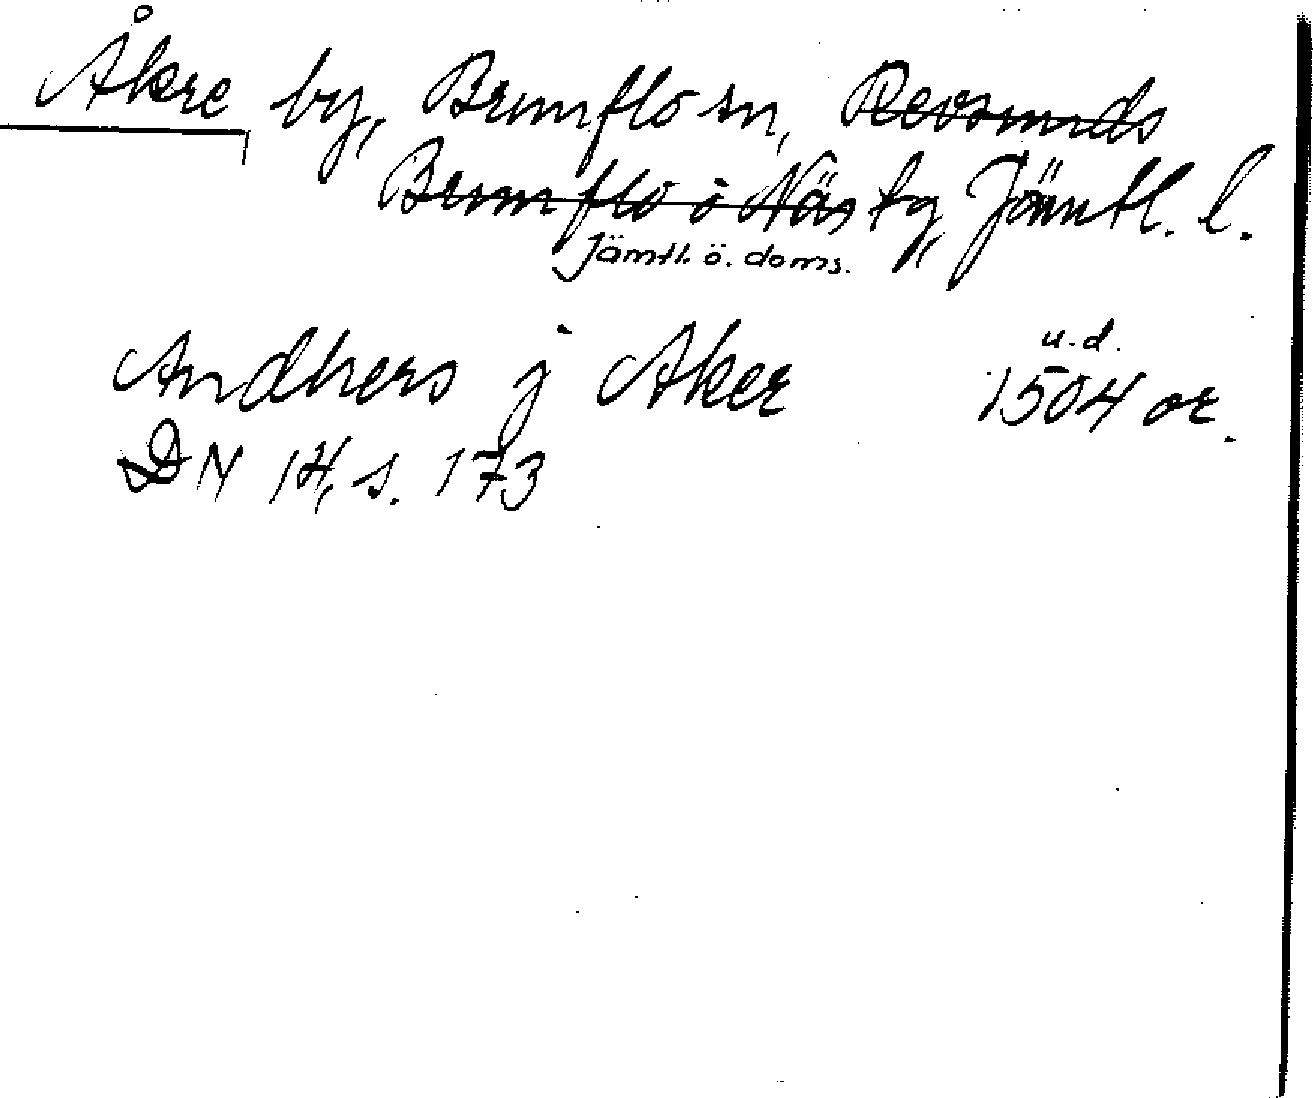 Åkre by, Brunflo sn, Revsunds
Brunflo o Näs tg, Jämtl. l.
Jämtl. ö. doms.
Andhers j Aker u.d. 1504 or.
DN 14, s. 173